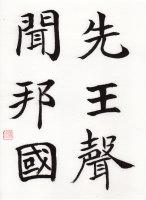 先王聲
聞邦國